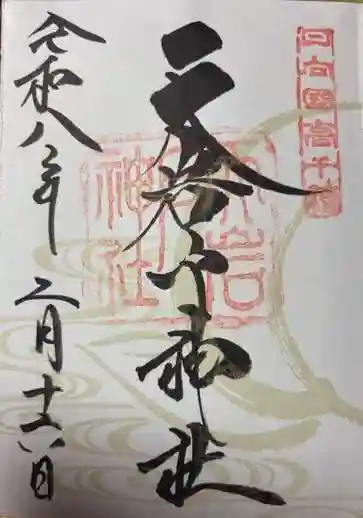 日向國高千穂
天岩戸神社
天岩戸神社
令和八年 二月十六日